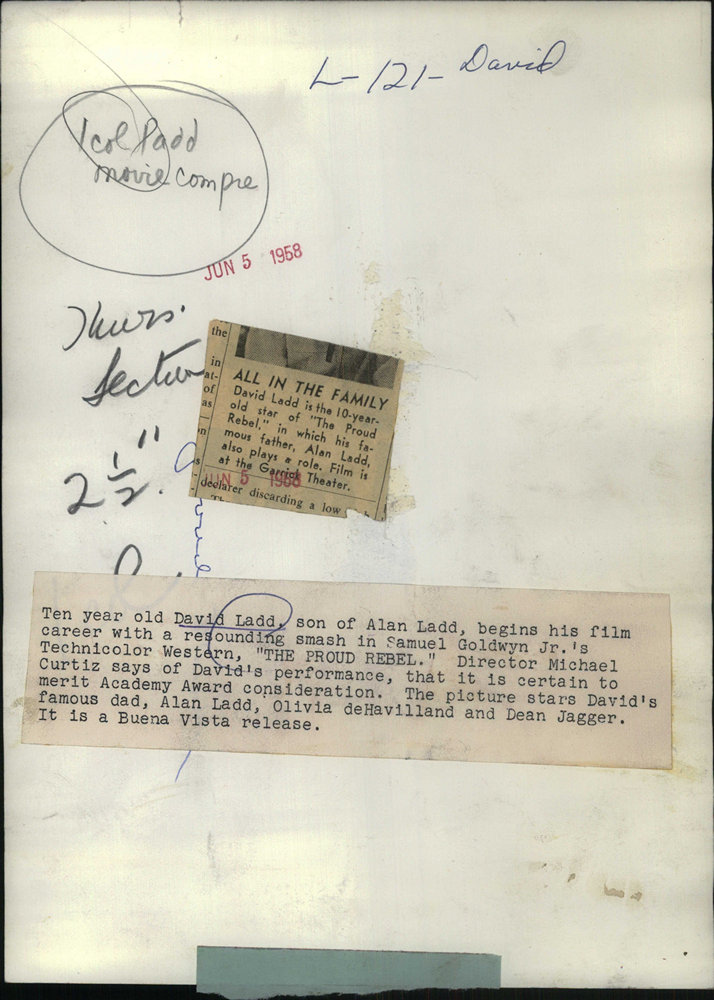 L-121- David
1 col Ladd
movie compre
JUN 5 1958
Thurs.
Section
2 1/2"
the
in
at-
of
as
ALL IN THE FAMILY
David Ladd is the 10-year-
old star of "The Proud
Rebel," in which his fa-
mous father, Alan Ladd,
also plays a role. Film is
at the Garrick Theater.
JUN 5 1958
declarer discarding a low
Ten year old David Ladd, son of Alan Ladd, begins his film
career with a resounding smash in Samuel Goldwyn Jr.'s
Technicolor Western, "THE PROUD REBEL." Director Michael
Curtiz says of David's performance, that it is certain to
merit Academy Award consideration. The picture stars David's
famous dad, Alan Ladd, Olivia deHavilland and Dean Jagger.
It is a Buena Vista release.